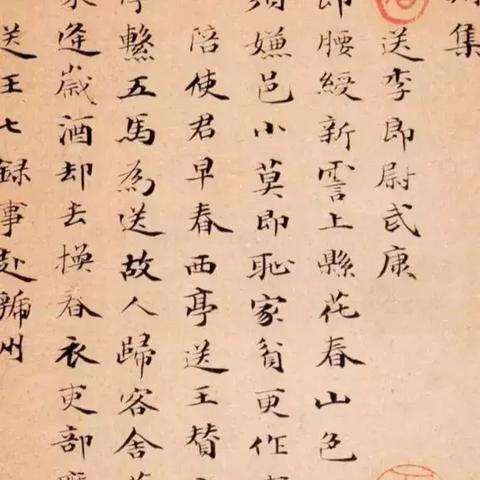 集
送李郎尉武康
郎腰綬新霅上縣花春山色
須嫌邑小莫即恥家貧更作
陪使君早春西亭送王贊
繫五馬為送故人歸客舍
逢歲酒却去換春衣吏部
送王七録事赴虢州